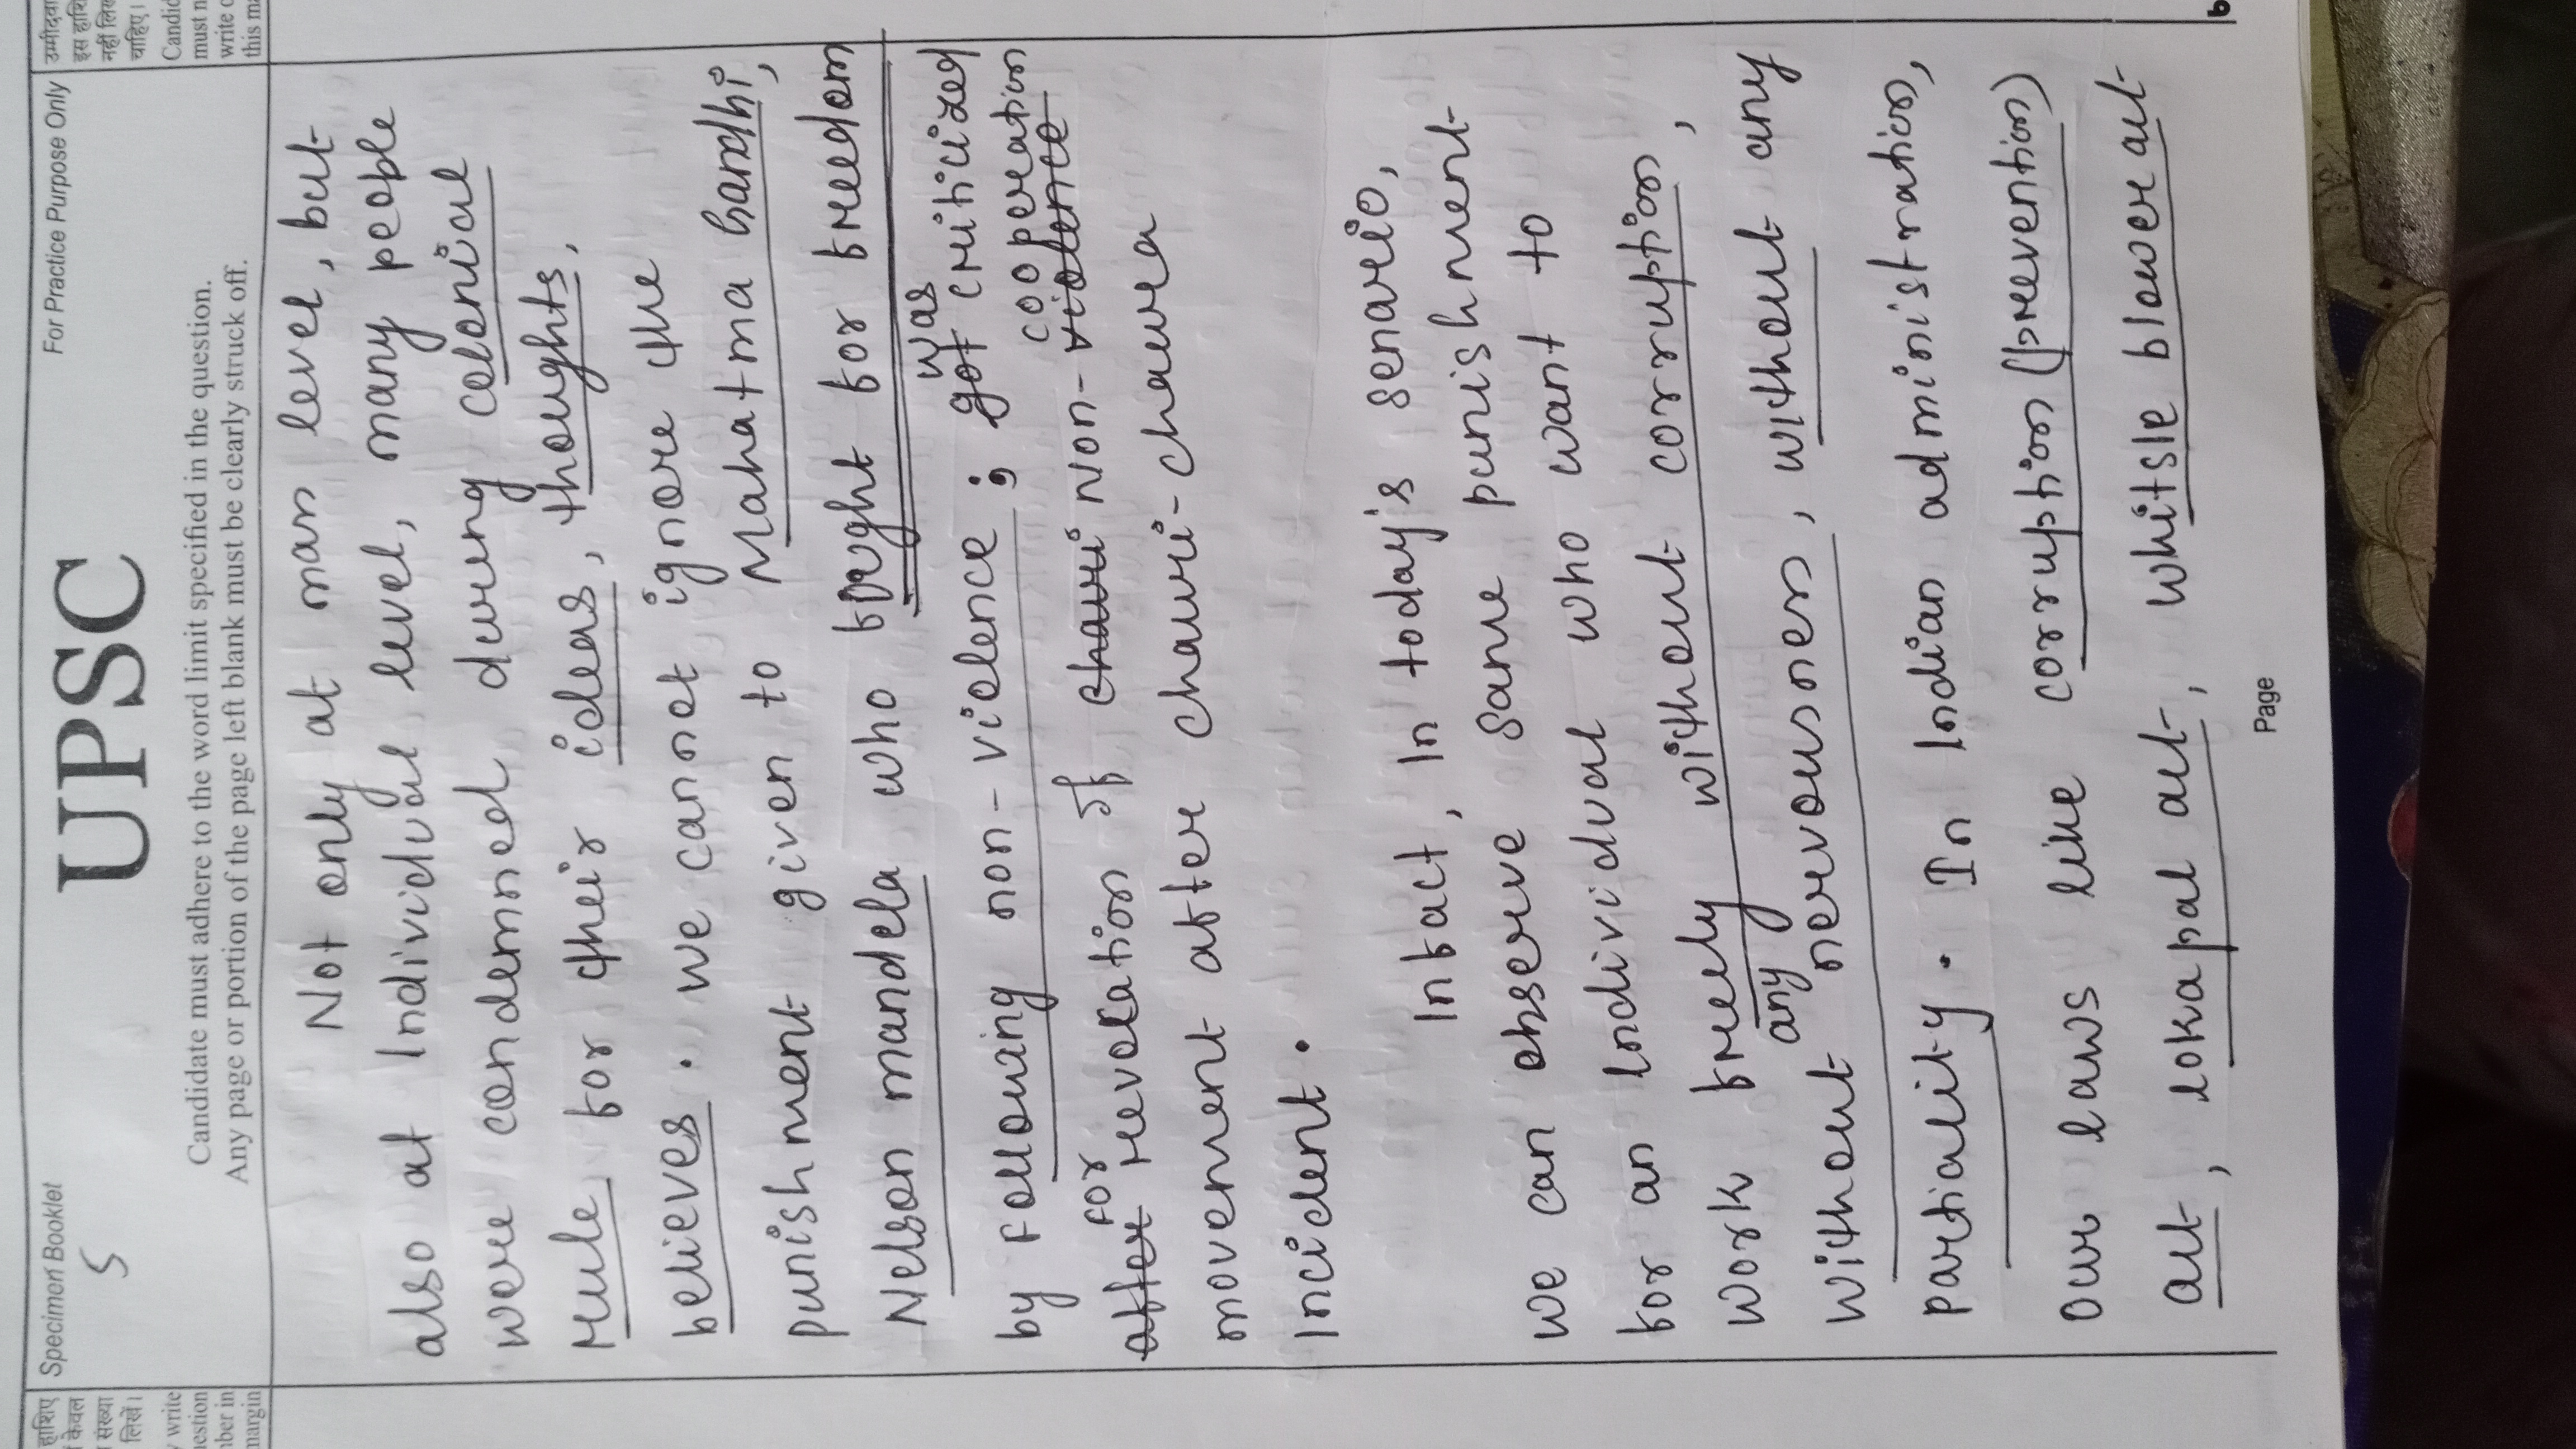 Specimen Booklet
For Practice Purpose Only
5
UPSC
Candidate must adhere to the word limit specified in the question.
Any page or portion of the page left blank must be clearly struck off.
हाशिए
केवल
संख्या
लिखें।
write
question
number in
margin
उम्मीदवार
इस हाशिए
नहीं लिखना
चाहिए।
must n
write o
this ma
Not only at mas level, but
also at Individual level, many people
were condemned during colonical
rule for their ideas, thoughts,
believes. we cannot ignore the
punishment given to Mahatma Gandhi,
Nelson mandela who fought for freedom
by Following non-violence ; got was criticized
after for revolation of chauri non-violence cooperation
movement after chauri-chaura
Incident.
Infact, In today's senario,
we can observe same punishment
for an Individual who want to
work freely without corruption,
without any nervousness, without any
partiality. In Indian administration,
our laws like corruption (prevention)
act, lokapal act, whitsle blower act
Page